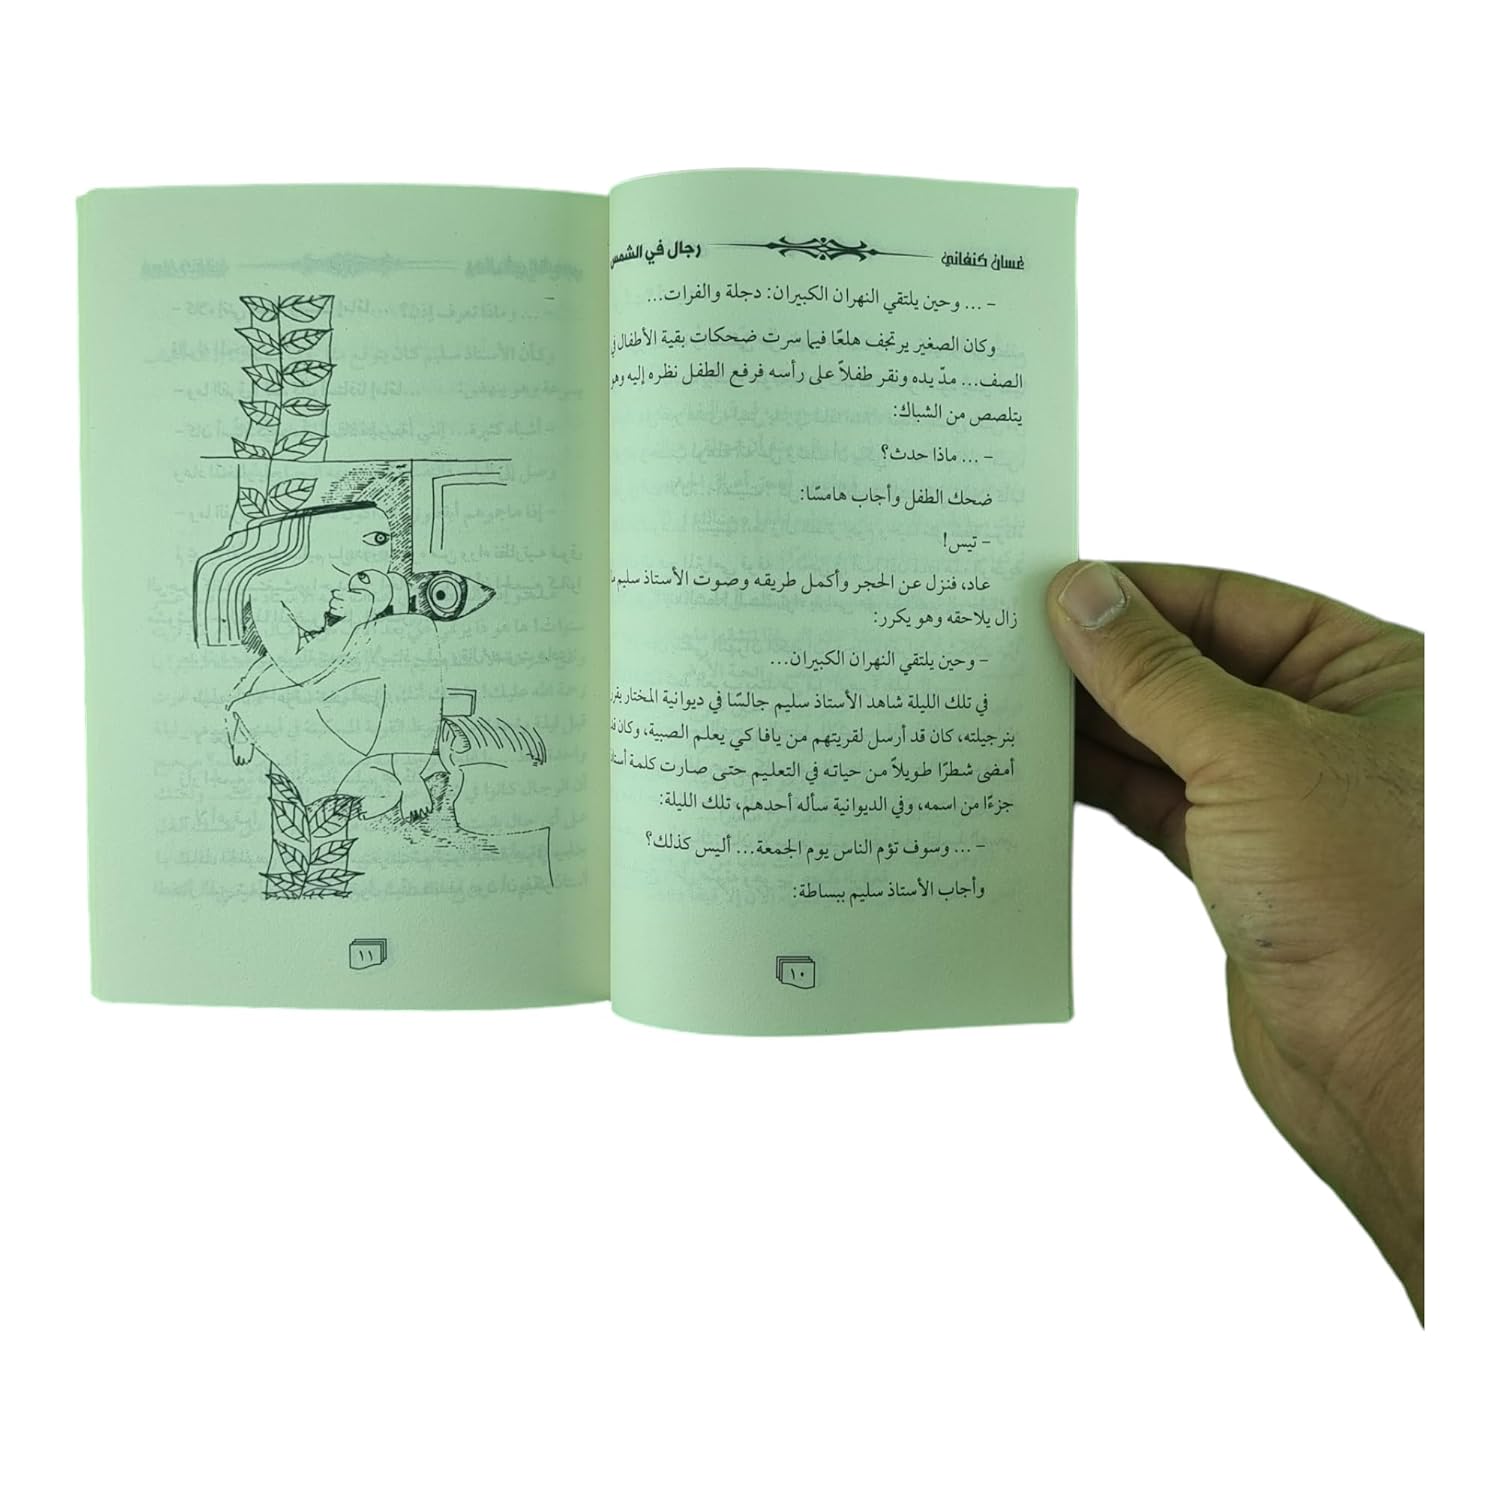 غسان كنفاني رجال في الشمس
- ... وحين يلتقي النهران الكبيران: دجلة والفرات...
وكان الصغير يرتجف هلعًا فيما سرت ضحكات بقية الأطفال في
الصف... مدّ يده ونقر طفلاً على رأسه فرفع الطفل نظره إليه وهو
يتلصص من الشباك:
- ... ماذا حدث؟
ضحك الطفل وأجاب هامسًا:
- تيس!
عاد، فنزل عن الحجر وأكمل طريقه وصوت الأستاذ سليم
زال يلاحقه وهو يكرر:
- وحين يلتقي النهران الكبيران...
في تلك الليلة شاهد الأستاذ سليم جالسًا في ديوانية المختار
بنرجيلته، كان قد أرسل لقريتهم من يافا كي يعلم الصبية، وكان
أمضى شطرًا طويلاً من حياته في التعليم حتى صارت كلمة
جزءًا من اسمه، وفي الديوانية سأله أحدهم، تلك الليلة:
- ... وسوف تؤم الناس يوم الجمعة... أليس كذلك؟
وأجاب الأستاذ سليم ببساطة:
١٠
١١